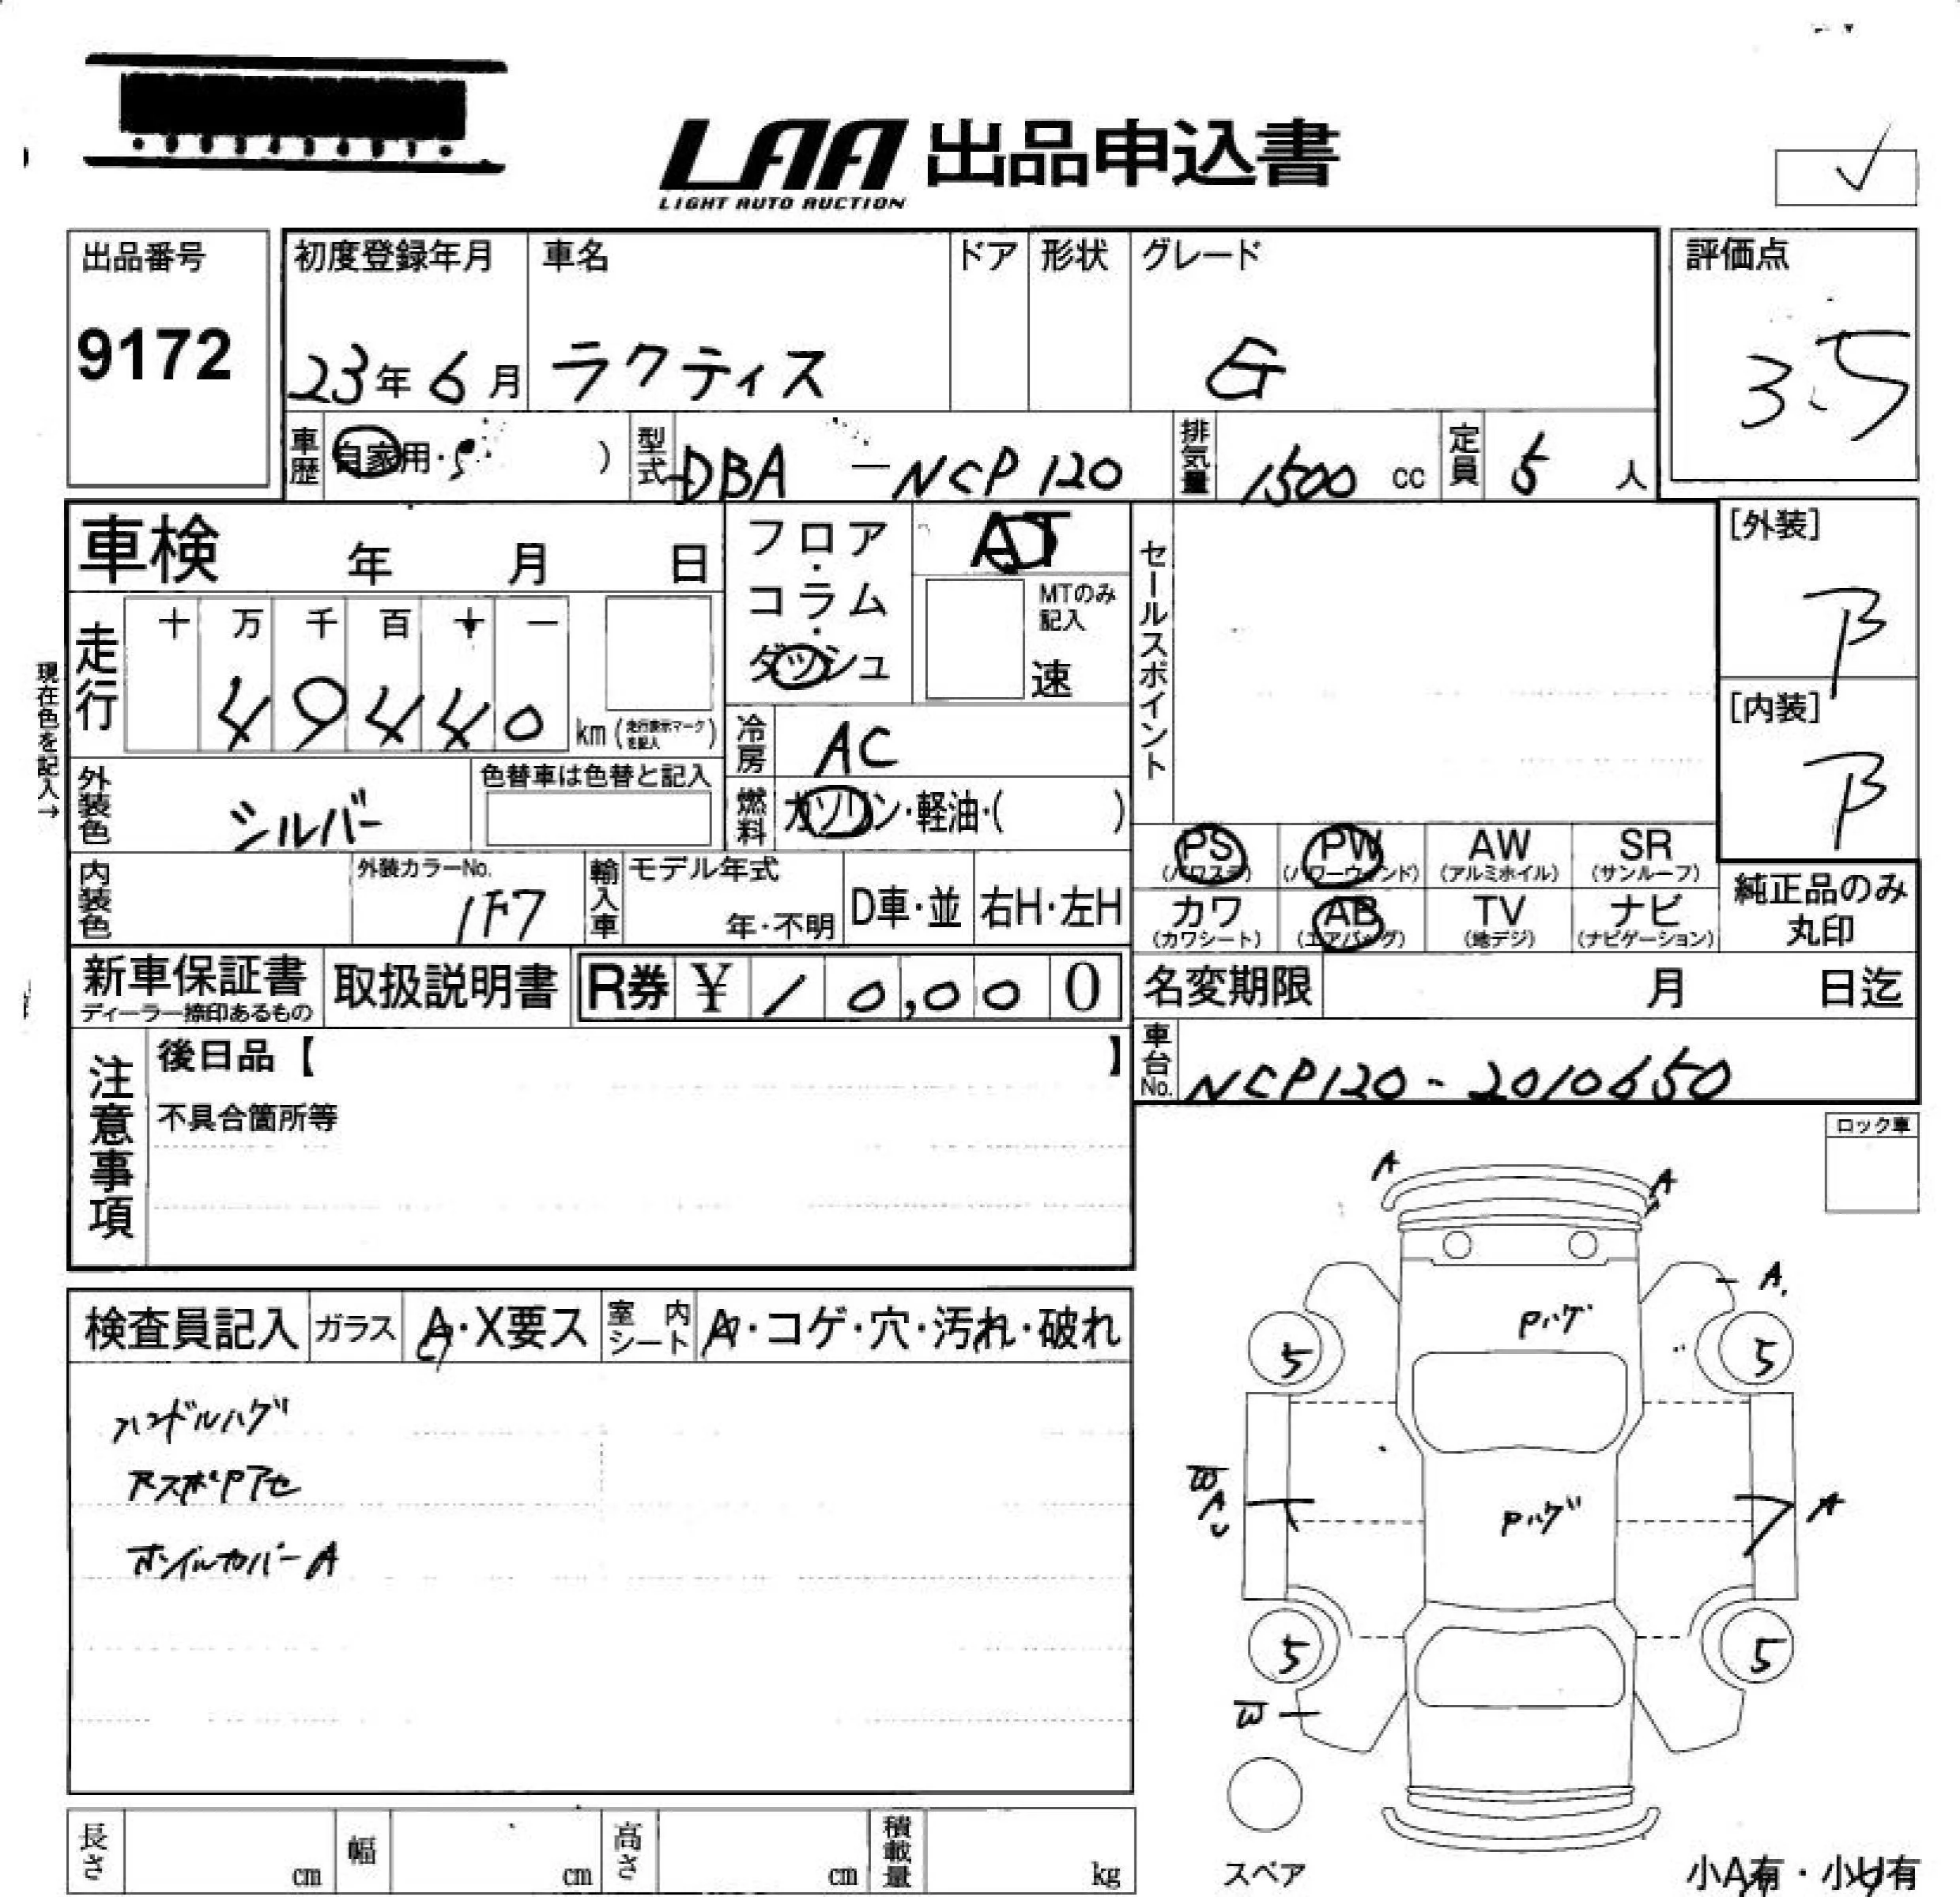 LAA 出品申込書
LIGHT AUTO AUCTION
出品番号
9172
初度登録年月 車名 ドア 形状 グレード
23年6月 ラクティス G
評価点
3.5
車歴 自家用・ ) 型式 DBA - NCP120 排気量 1500 cc 定員 5 人
車検 年 月 日
フロア・コラム・ダッシュ
AT
MTのみ記入
速
セールスポイント
[外装]
B
[内装]
B
現在色を記入→
走行 十 万 千 百 十 一
4 9 4 4 0 km (走行表示マークを記入)
冷房 AC
外装色 シルバー 色替車は色替と記入
燃料 ガソリン・軽油・( )
PS (パワステ) PW (パワーウィンド) AW (アルミホイル) SR (サンルーフ)
カワ (カワシート) AB (エアバッグ) TV (地デジ) ナビ (ナビゲーション)
純正品のみ丸印
内装色 外装カラーNo. 1F7 輸入車 モデル年式 年・不明 D車・並 右H・左H
新車保証書 ディーラー捺印あるもの 取扱説明書 R券 ¥ 10,000
名変期限 月 日迄
車台No. NCP120-2010650
注意事項
後日品【 】
不具合箇所等
ロック車
検査員記入 ガラス A・X要ス 室内シート A・コゲ・穴・汚れ・破れ
ハンドルハゲ
ホイルカバーA
A A
A.
Pハゲ
5 5
W
A
U
A
Pハゲ
5 5
W
スペア
長さ cm 幅 cm 高さ cm 積載量 kg
小A有・小U有